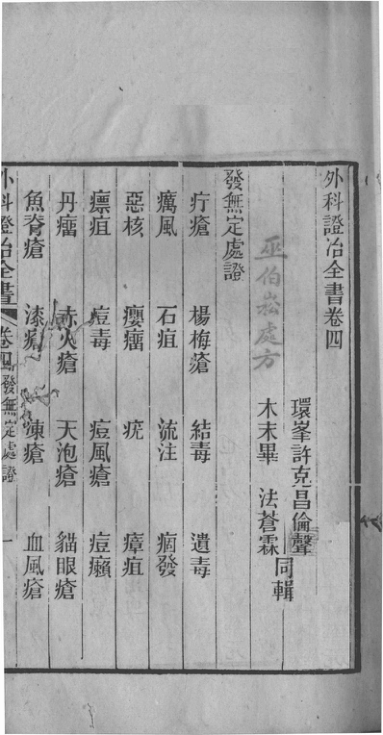 外科證治全書卷四
環峯許克昌倫聲
木末畢　法蒼霖
同輯
巫伯崧處方
發無定處證
疔瘡　楊梅瘡　結毒　遺毒
癘風　石疽　流注　痼發
惡核　癭瘤　疣　瘴疽
瘭疽　痘毒　痘風瘡　痘癩
丹瘤　赤火瘡　天泡瘡　貓眼瘡
魚脊瘡　漆瘡　凍瘡　血風瘡
外科證治全書　卷四　發無定處證　一